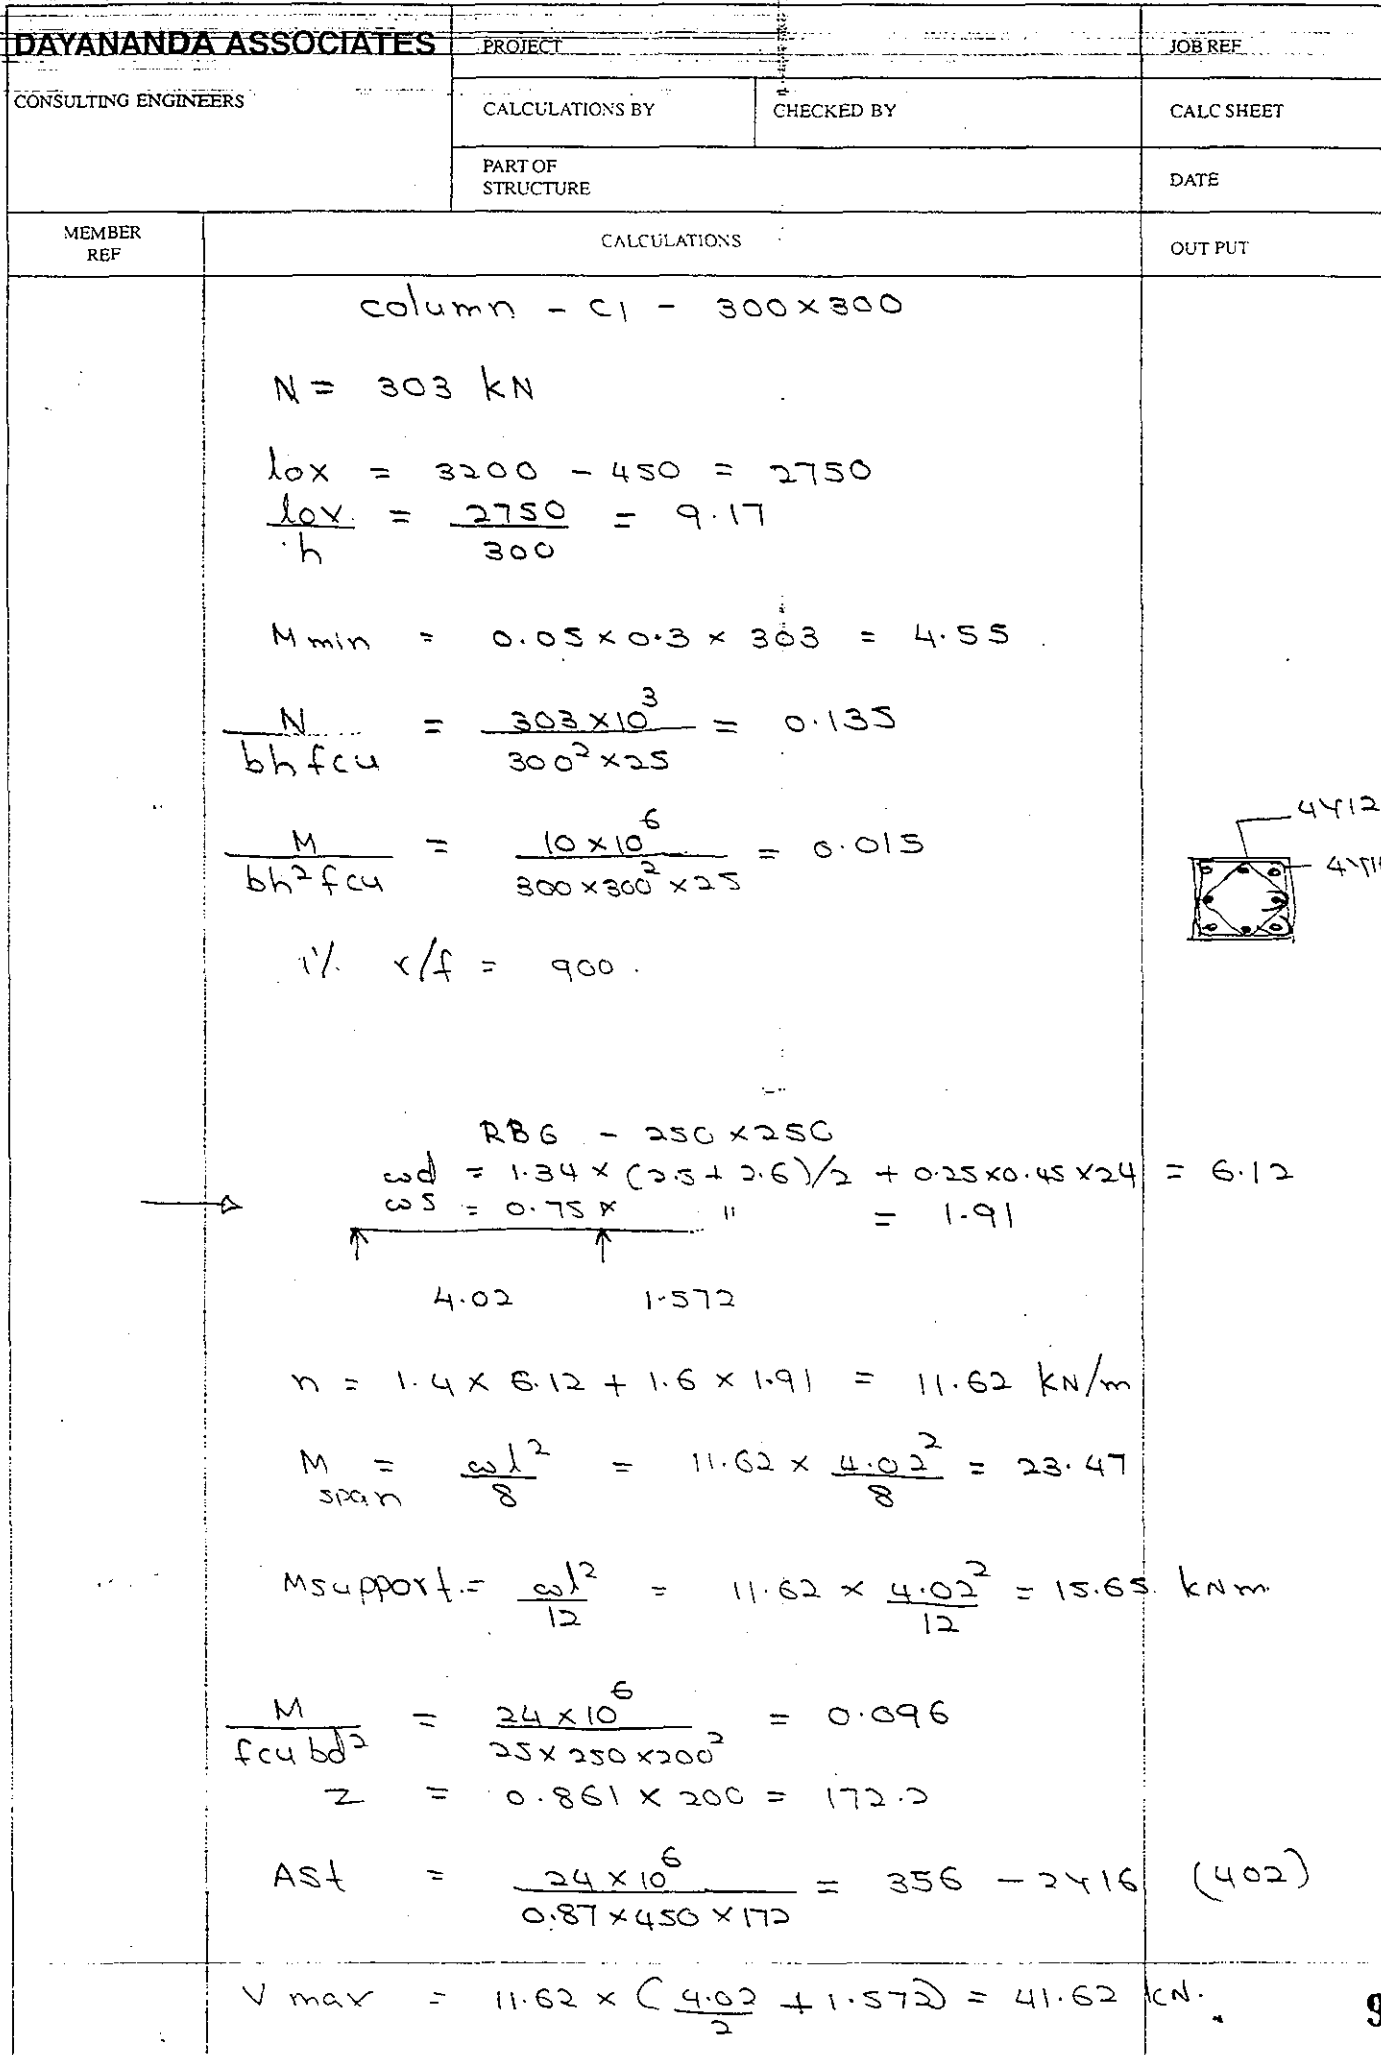 DAYANANDA ASSOCIATES
PROJECT
JOB REF
CONSULTING ENGINEERS
CALCULATIONS BY
CHECKED BY
CALC SHEET
PART OF
STRUCTURE
DATE
MEMBER
REF
CALCULATIONS
OUT PUT
column - C1 - 300×300
N = 303 kN
lox = 3200 - 450 = 2750
lox/h = 2750/300 = 9.17
M min = 0.05 × 0.3 × 303 = 4.55
N/bhfcu = 303×10³/300²×25 = 0.135
M/bh²fcu = 10×10⁶/300×300²×25 = 0.015
4Y12
1% r/f = 900.
RB6 - 250×250
ωd = 1.34 × (2.5+2.6)/2 + 0.25×0.45×24 = 6.12
ωs = 0.75 × " = 1.91
4.02 1.572
n = 1.4 × 6.12 + 1.6 × 1.91 = 11.62 kN/m
M span = ωl²/8 = 11.62 × 4.02²/8 = 23.47
Msupport = ωl²/12 = 11.62 × 4.02²/12 = 15.65 kNm.
M/fcubd² = 24×10⁶/25×250×200² = 0.096
z = 0.861 × 200 = 172.2
ASt = 24×10⁶/0.87×450×172 = 356 - 2Y16 (402)
V max = 11.62 × (4.02/2 + 1.572) = 41.62 kN.